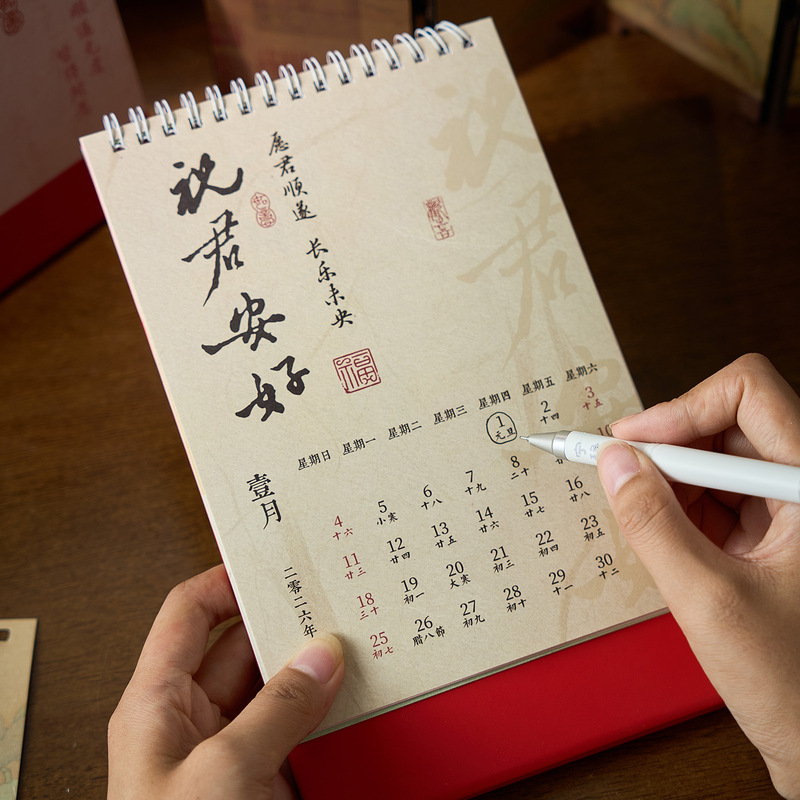 祝君安好
愿君顺遂
长乐未央
福
壹月
二零二六年
星期日 星期一 星期二 星期三 星期四 星期五 星期六
1 2 3
元旦 十四 十五
4 5 6 7 8
十六 小寒 十八 十九 二十
11 12 13 14 15 16
廿三 廿四 廿五 廿六 廿七 廿八
18 19 20 21 22 23
三十 初一 大寒 初三 初四 初五
25 26 27 28 29 30
初七 腊八節 初九 初十 十一 十二
祝君安